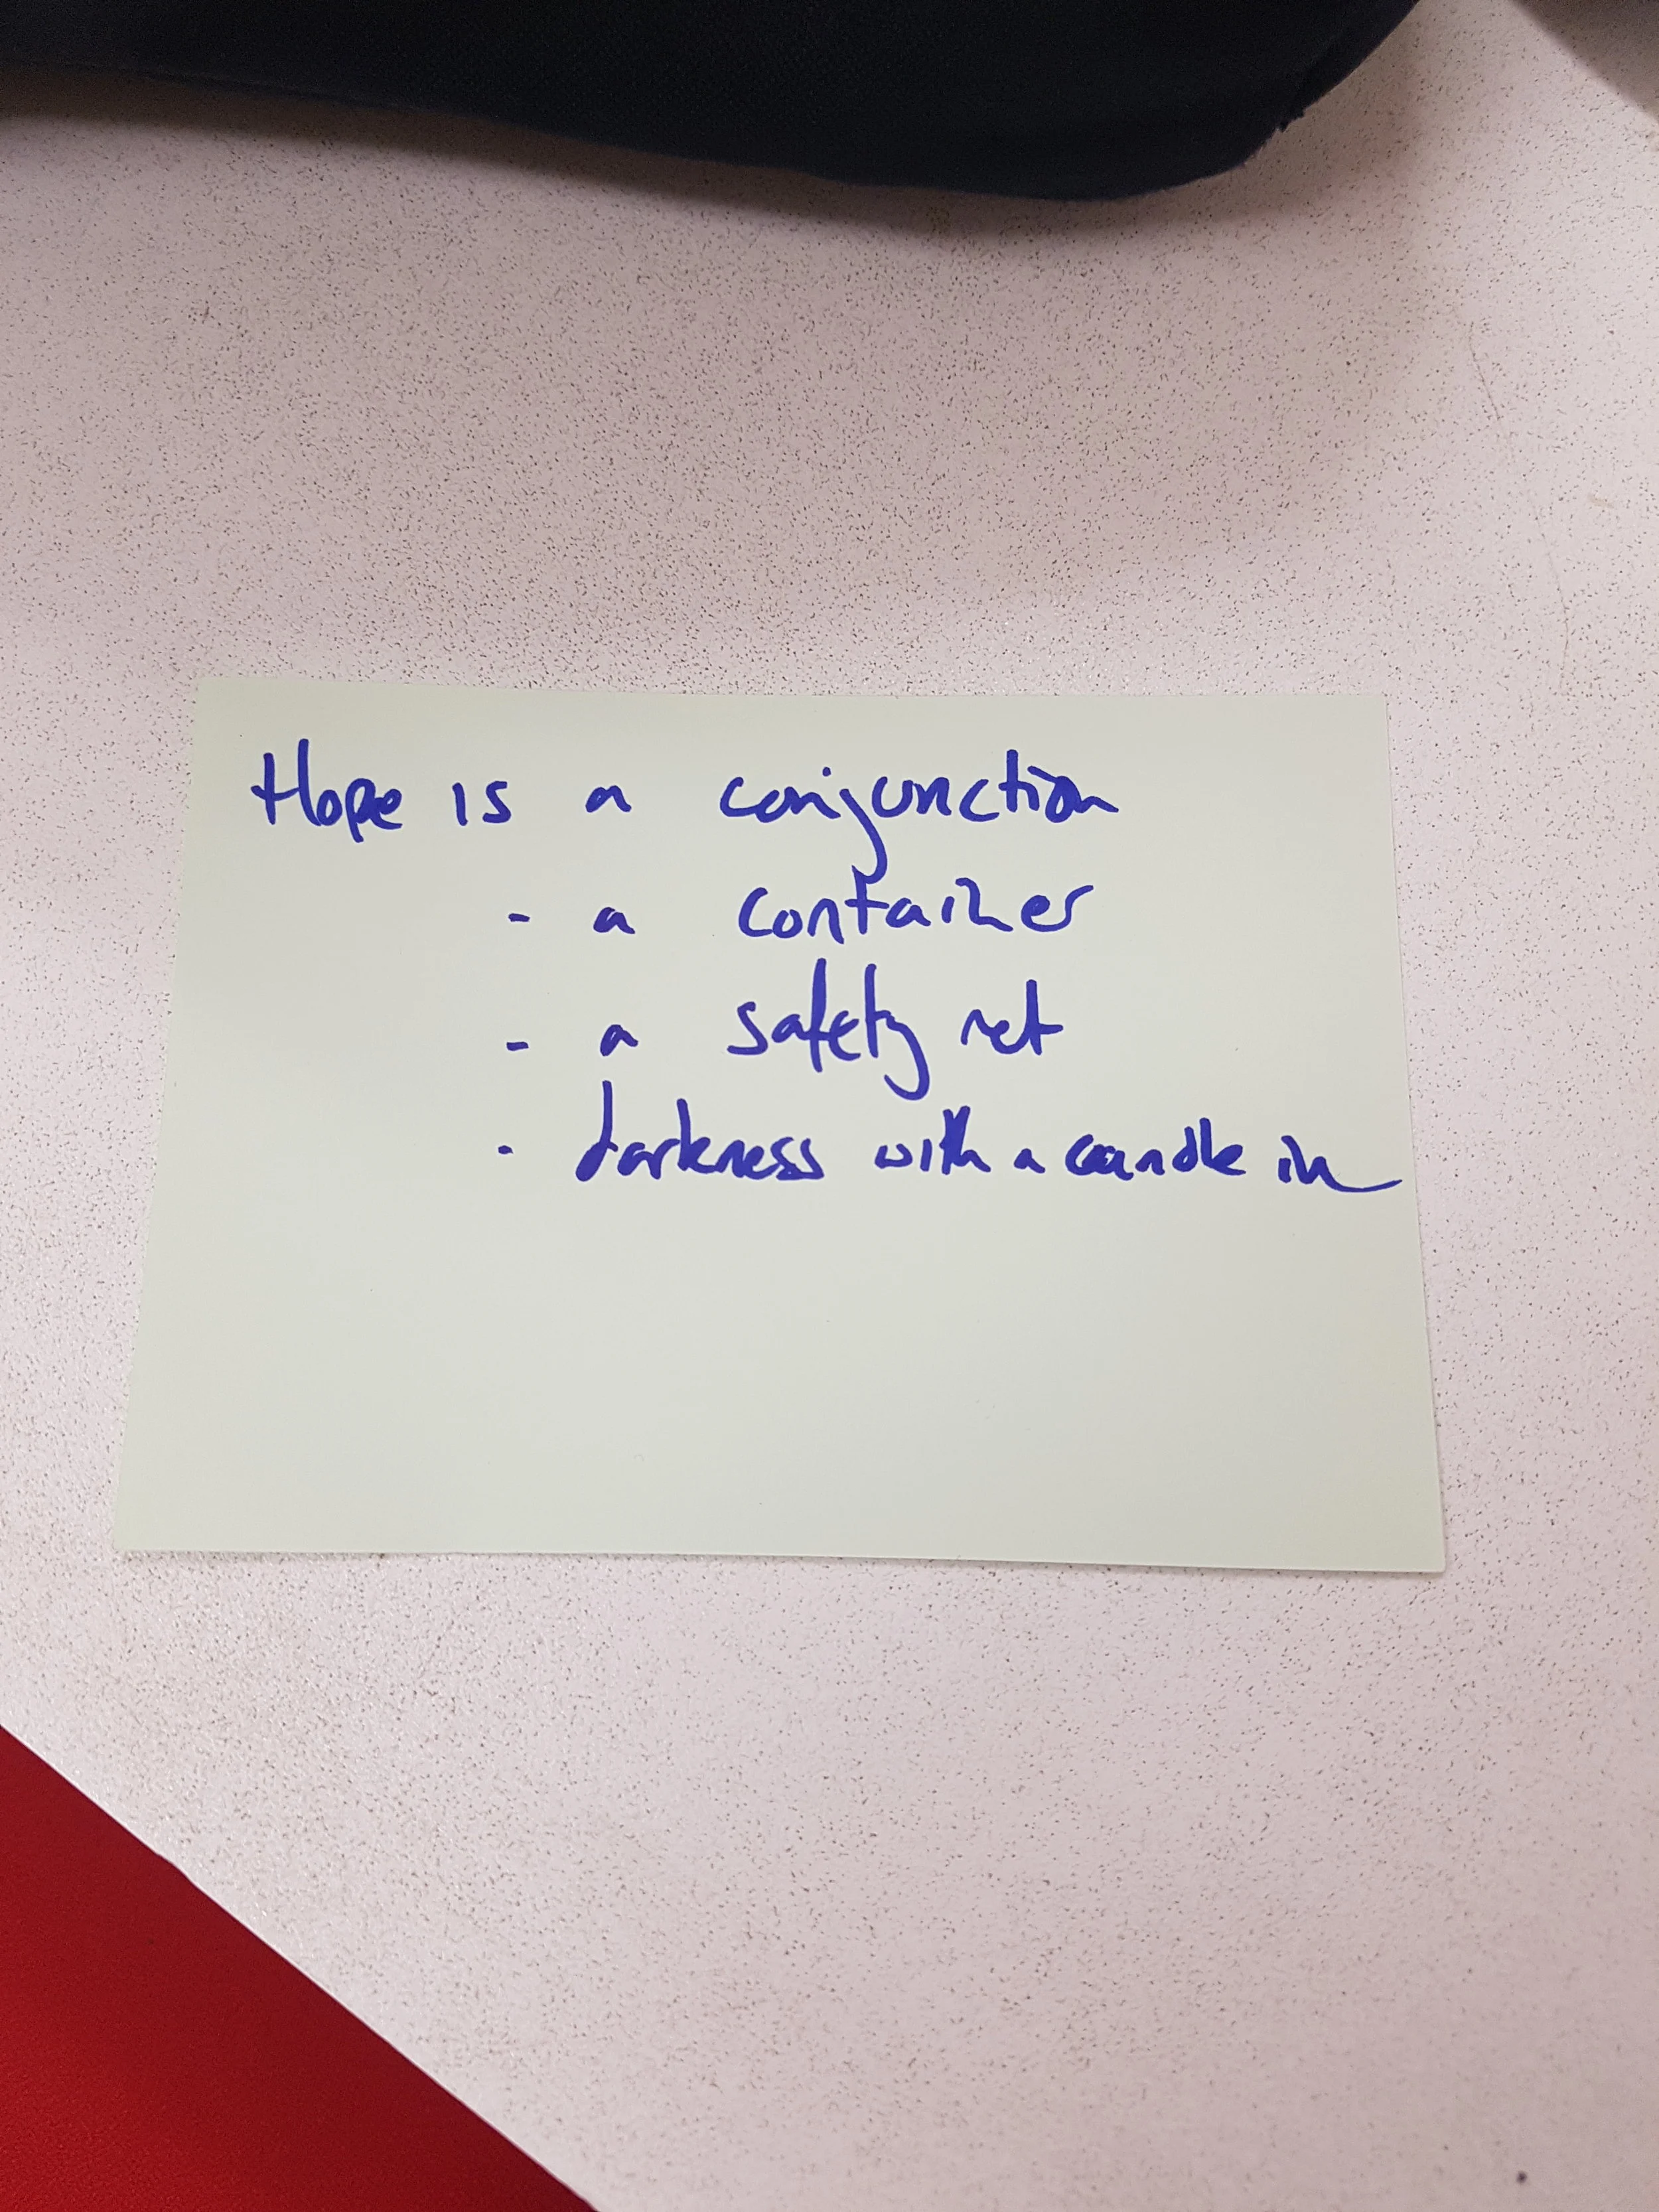 Hope is a conjunction
- a container
- a safety net
- darkness with a candle in